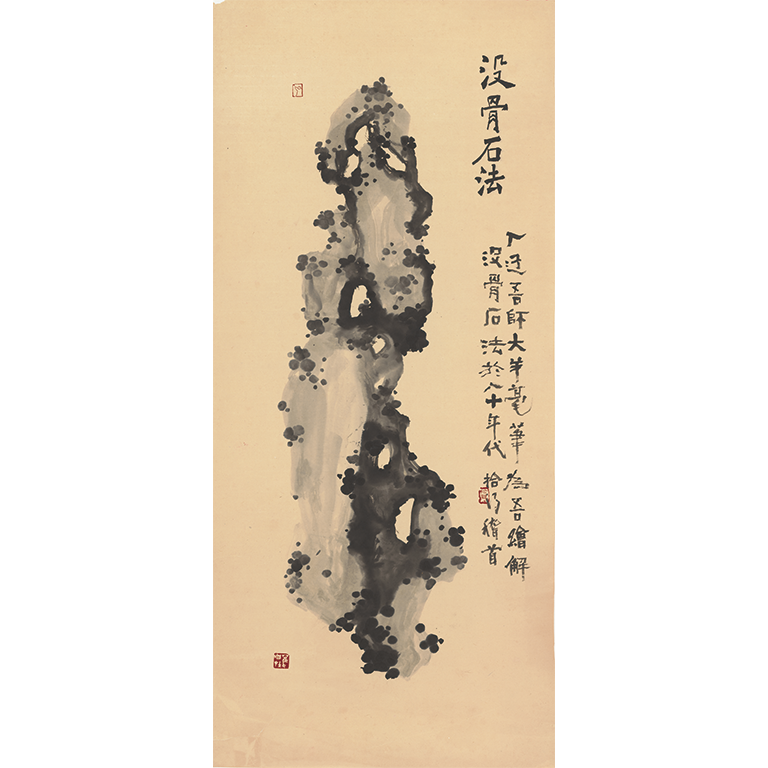 没骨石法
人迂吾師大羊毫筆為吾繪解
没骨石法於八十年代
拾得稽首